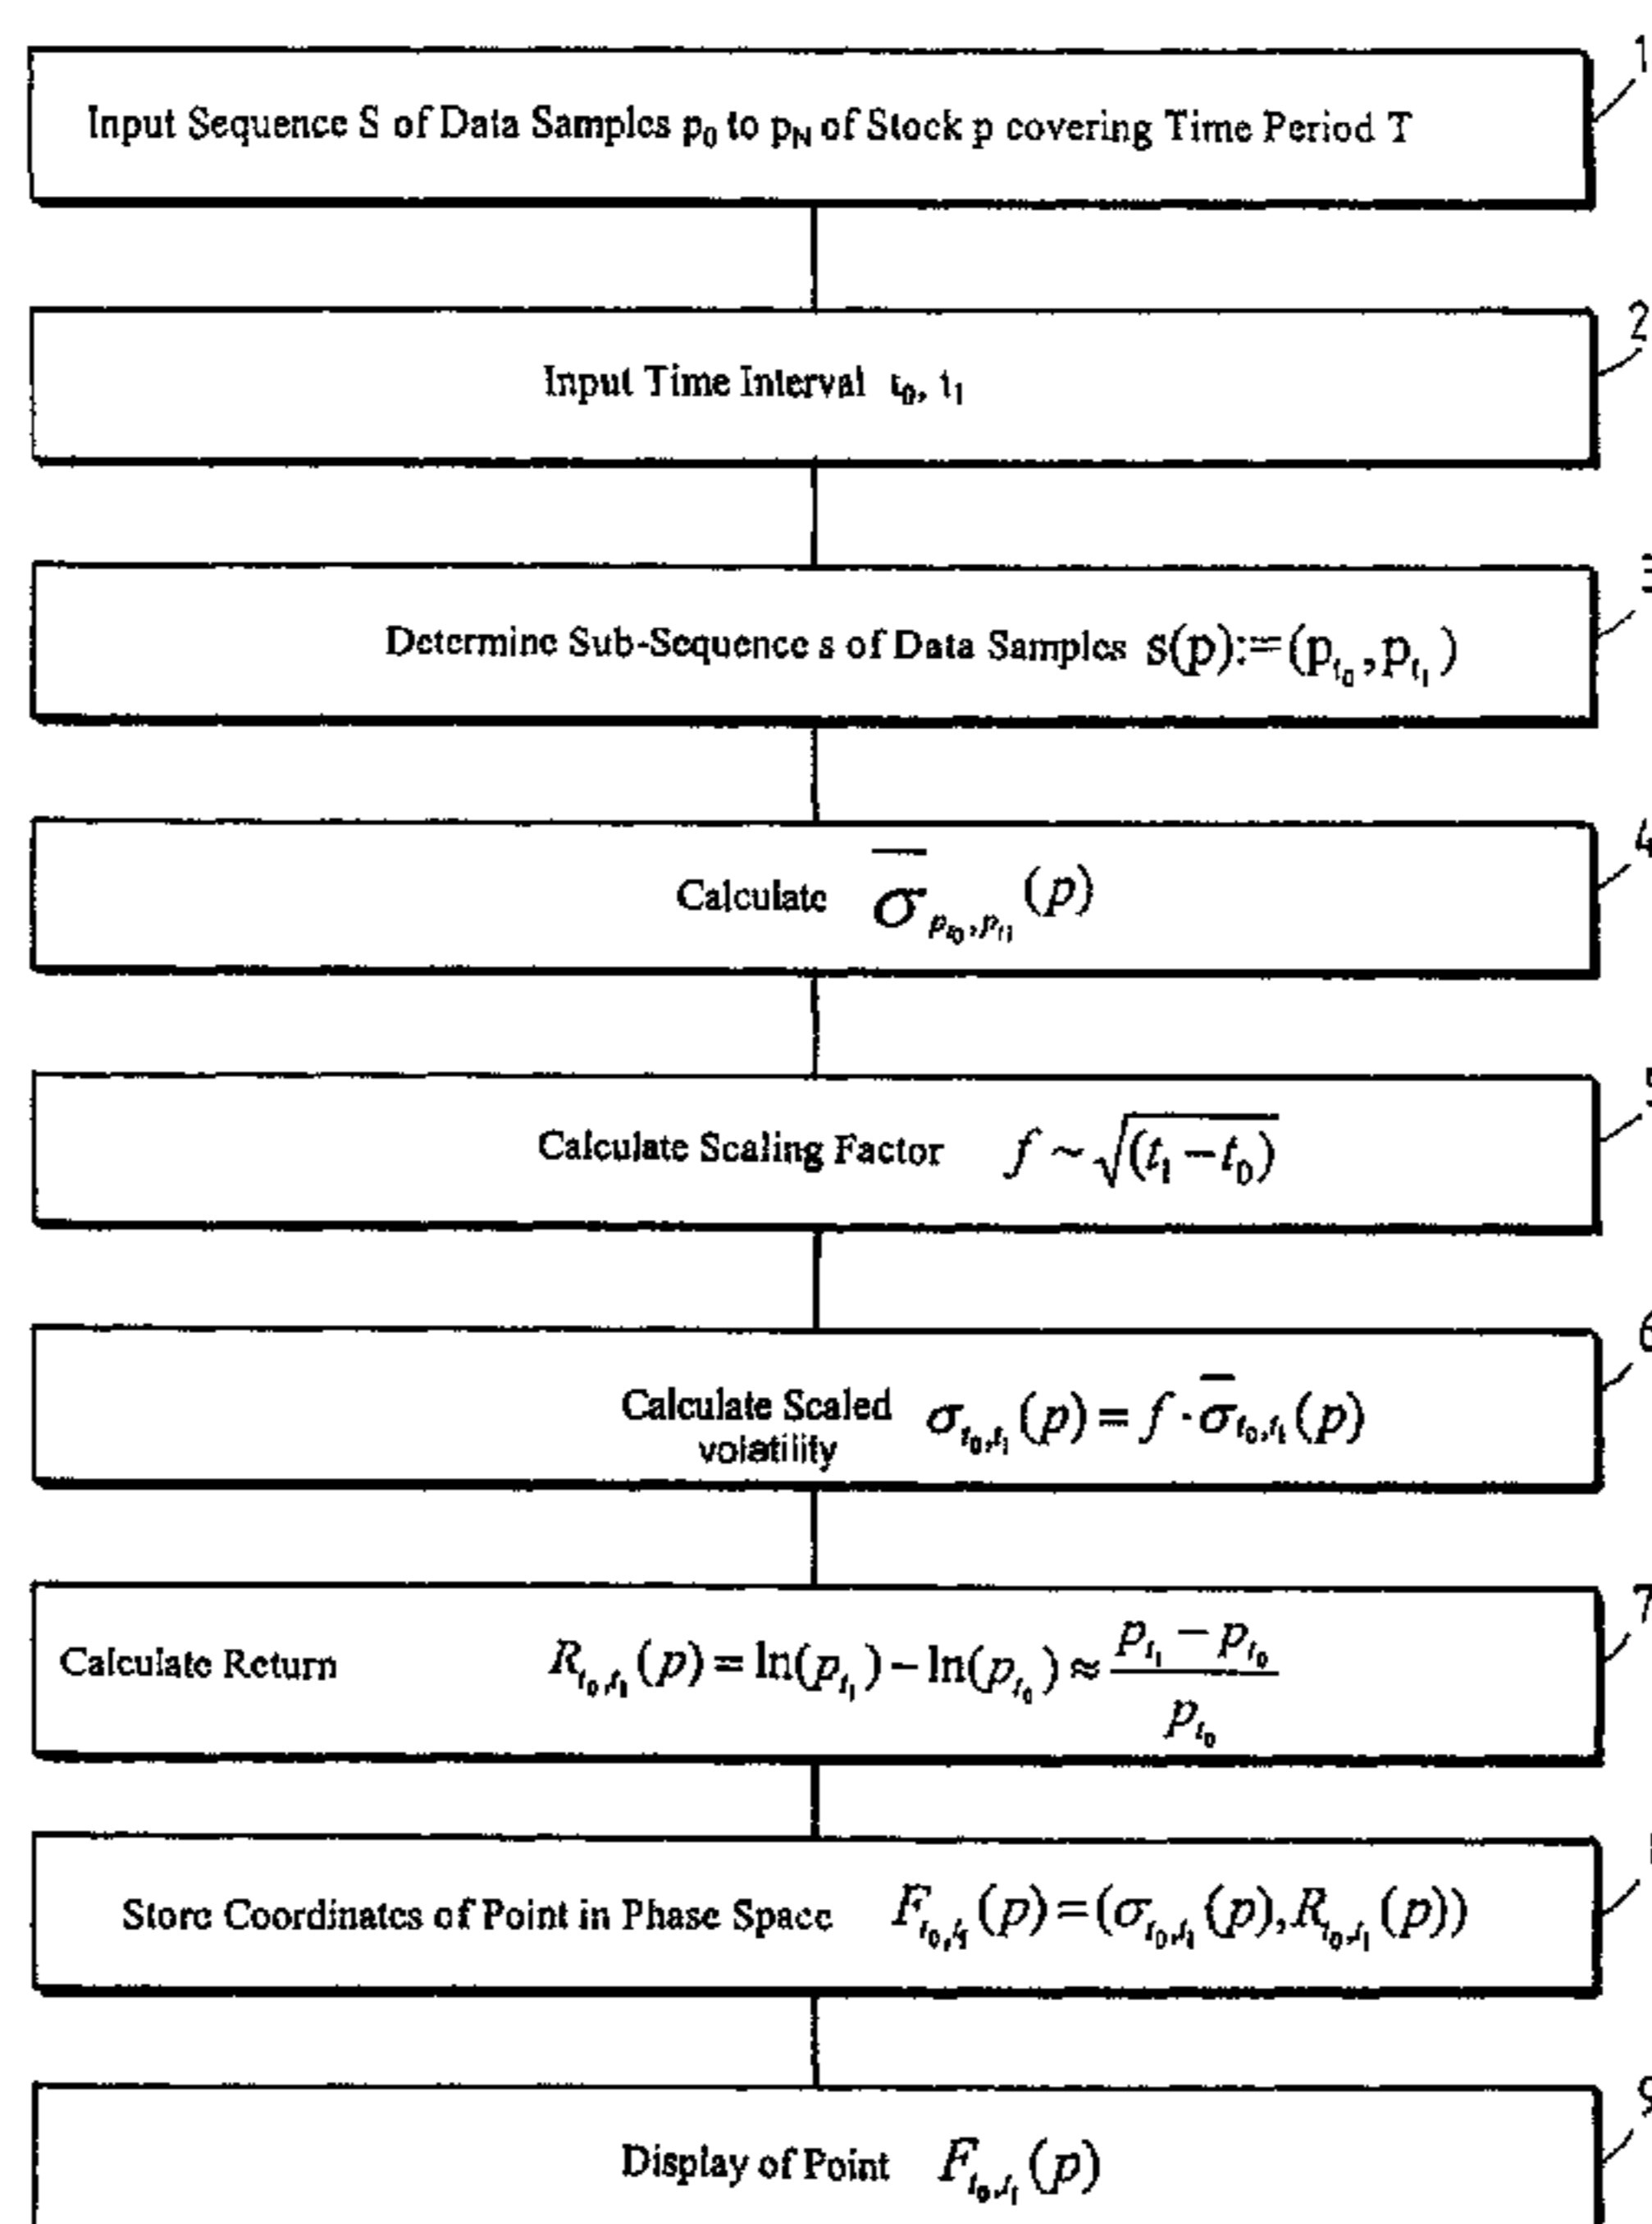 1
Input Sequence S of Data Samples p₀ to p_N of Stock p covering Time Period T
2
Input Time Interval t₀, t₁
3
Determine Sub-Sequence s of Data Samples s(p):=(p_{t₀},p_{t₁})
4
Calculate \overline{σ}_{p_{t₀},p_{t₁}}(p)
5
Calculate Scaling Factor f ~ √(t₁ − t₀)
6
Calculate Scaled volatility σ_{t₀,t₁}(p) = f · \overline{σ}_{t₀,t₁}(p)
7
Calculate Return R_{t₀,t₁}(p) = ln(p_{t₁}) − ln(p_{t₀}) ≈ \frac{p_{t₁} − p_{t₀}}{p_{t₀}}
Store Coordinates of Point in Phase Space F_{t₀,t₁}(p) = (σ_{t₀,t₁}(p), R_{t₀,t₁}(p))
9
Display of Point F_{t₀,t₁}(p)